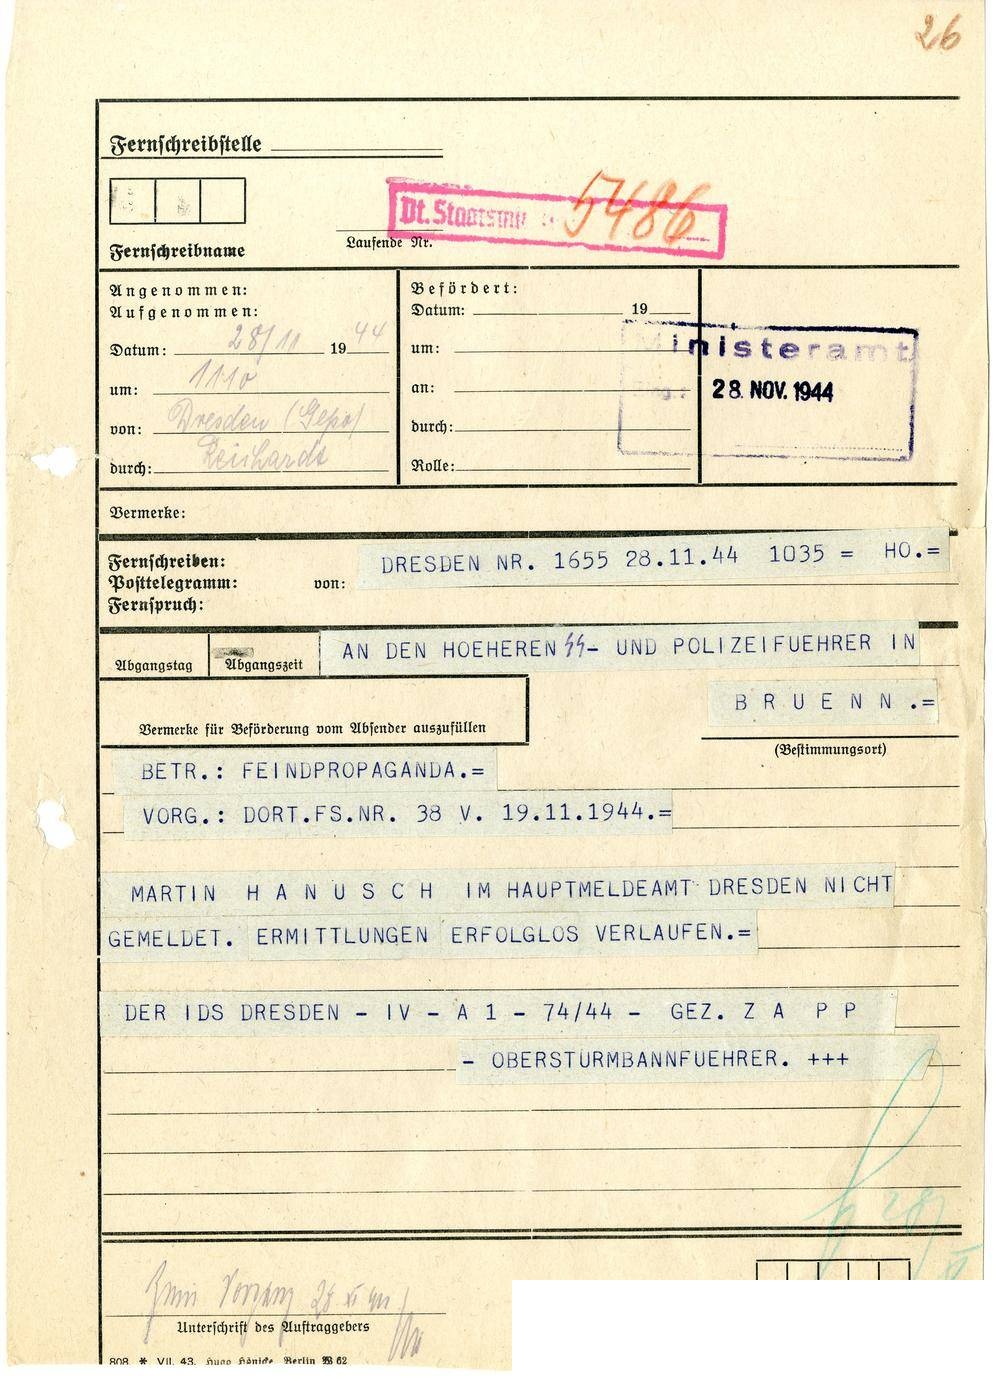 26
Fernschreibstelle
5486
Dt. Staatsmin
Laufende Nr.
Fernschreibname
Angenommen:
Aufgenommen:
Datum: 28/11 1944
um: 1110
von: Dresden (Gepo)
durch: Reinhardt
Befördert:
Datum: 19
um:
an:
durch:
Rolle:
Ministeramt
28. NOV. 1944
Vermerke:
Fernschreiben:
Posttelegramm: von:
Fernspruch:
DRESDEN NR. 1655 28.11.44 1035 = HO.=
Abgangstag Abgangszeit
AN DEN HOEHEREN SS- UND POLIZEIFUEHRER IN
B R U E N N .=
Vermerke für Beförderung vom Absender auszufüllen
(Bestimmungsort)
BETR.: FEINDPROPAGANDA.=
VORG.: DORT.FS.NR. 38 V. 19.11.1944.=
MARTIN H A N U S C H IM HAUPTMELDEAMT DRESDEN NICHT
GEMELDET. ERMITTLUNGEN ERFOLGLOS VERLAUFEN.=
DER IDS DRESDEN - IV - A 1 - 74/44 - GEZ. Z A P P
- OBERSTURMBANNFUEHRER. +++
28
Zum Vorgang 28 XI
Unterschrift des Auftraggebers
808 * VII. 43. Hugo Hönicke, Berlin W 62